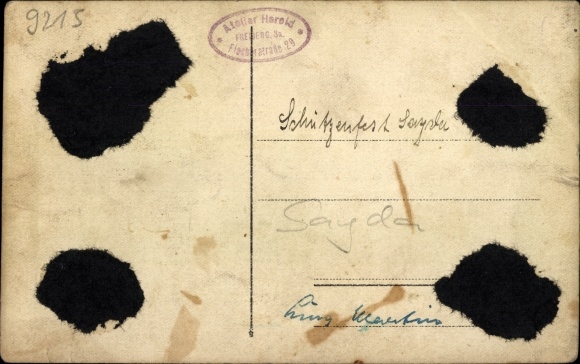 9215
Atelier Herold
FREIBERG, Sa.
Fischerstraße 29
Schützenfest Sayda
Sayda